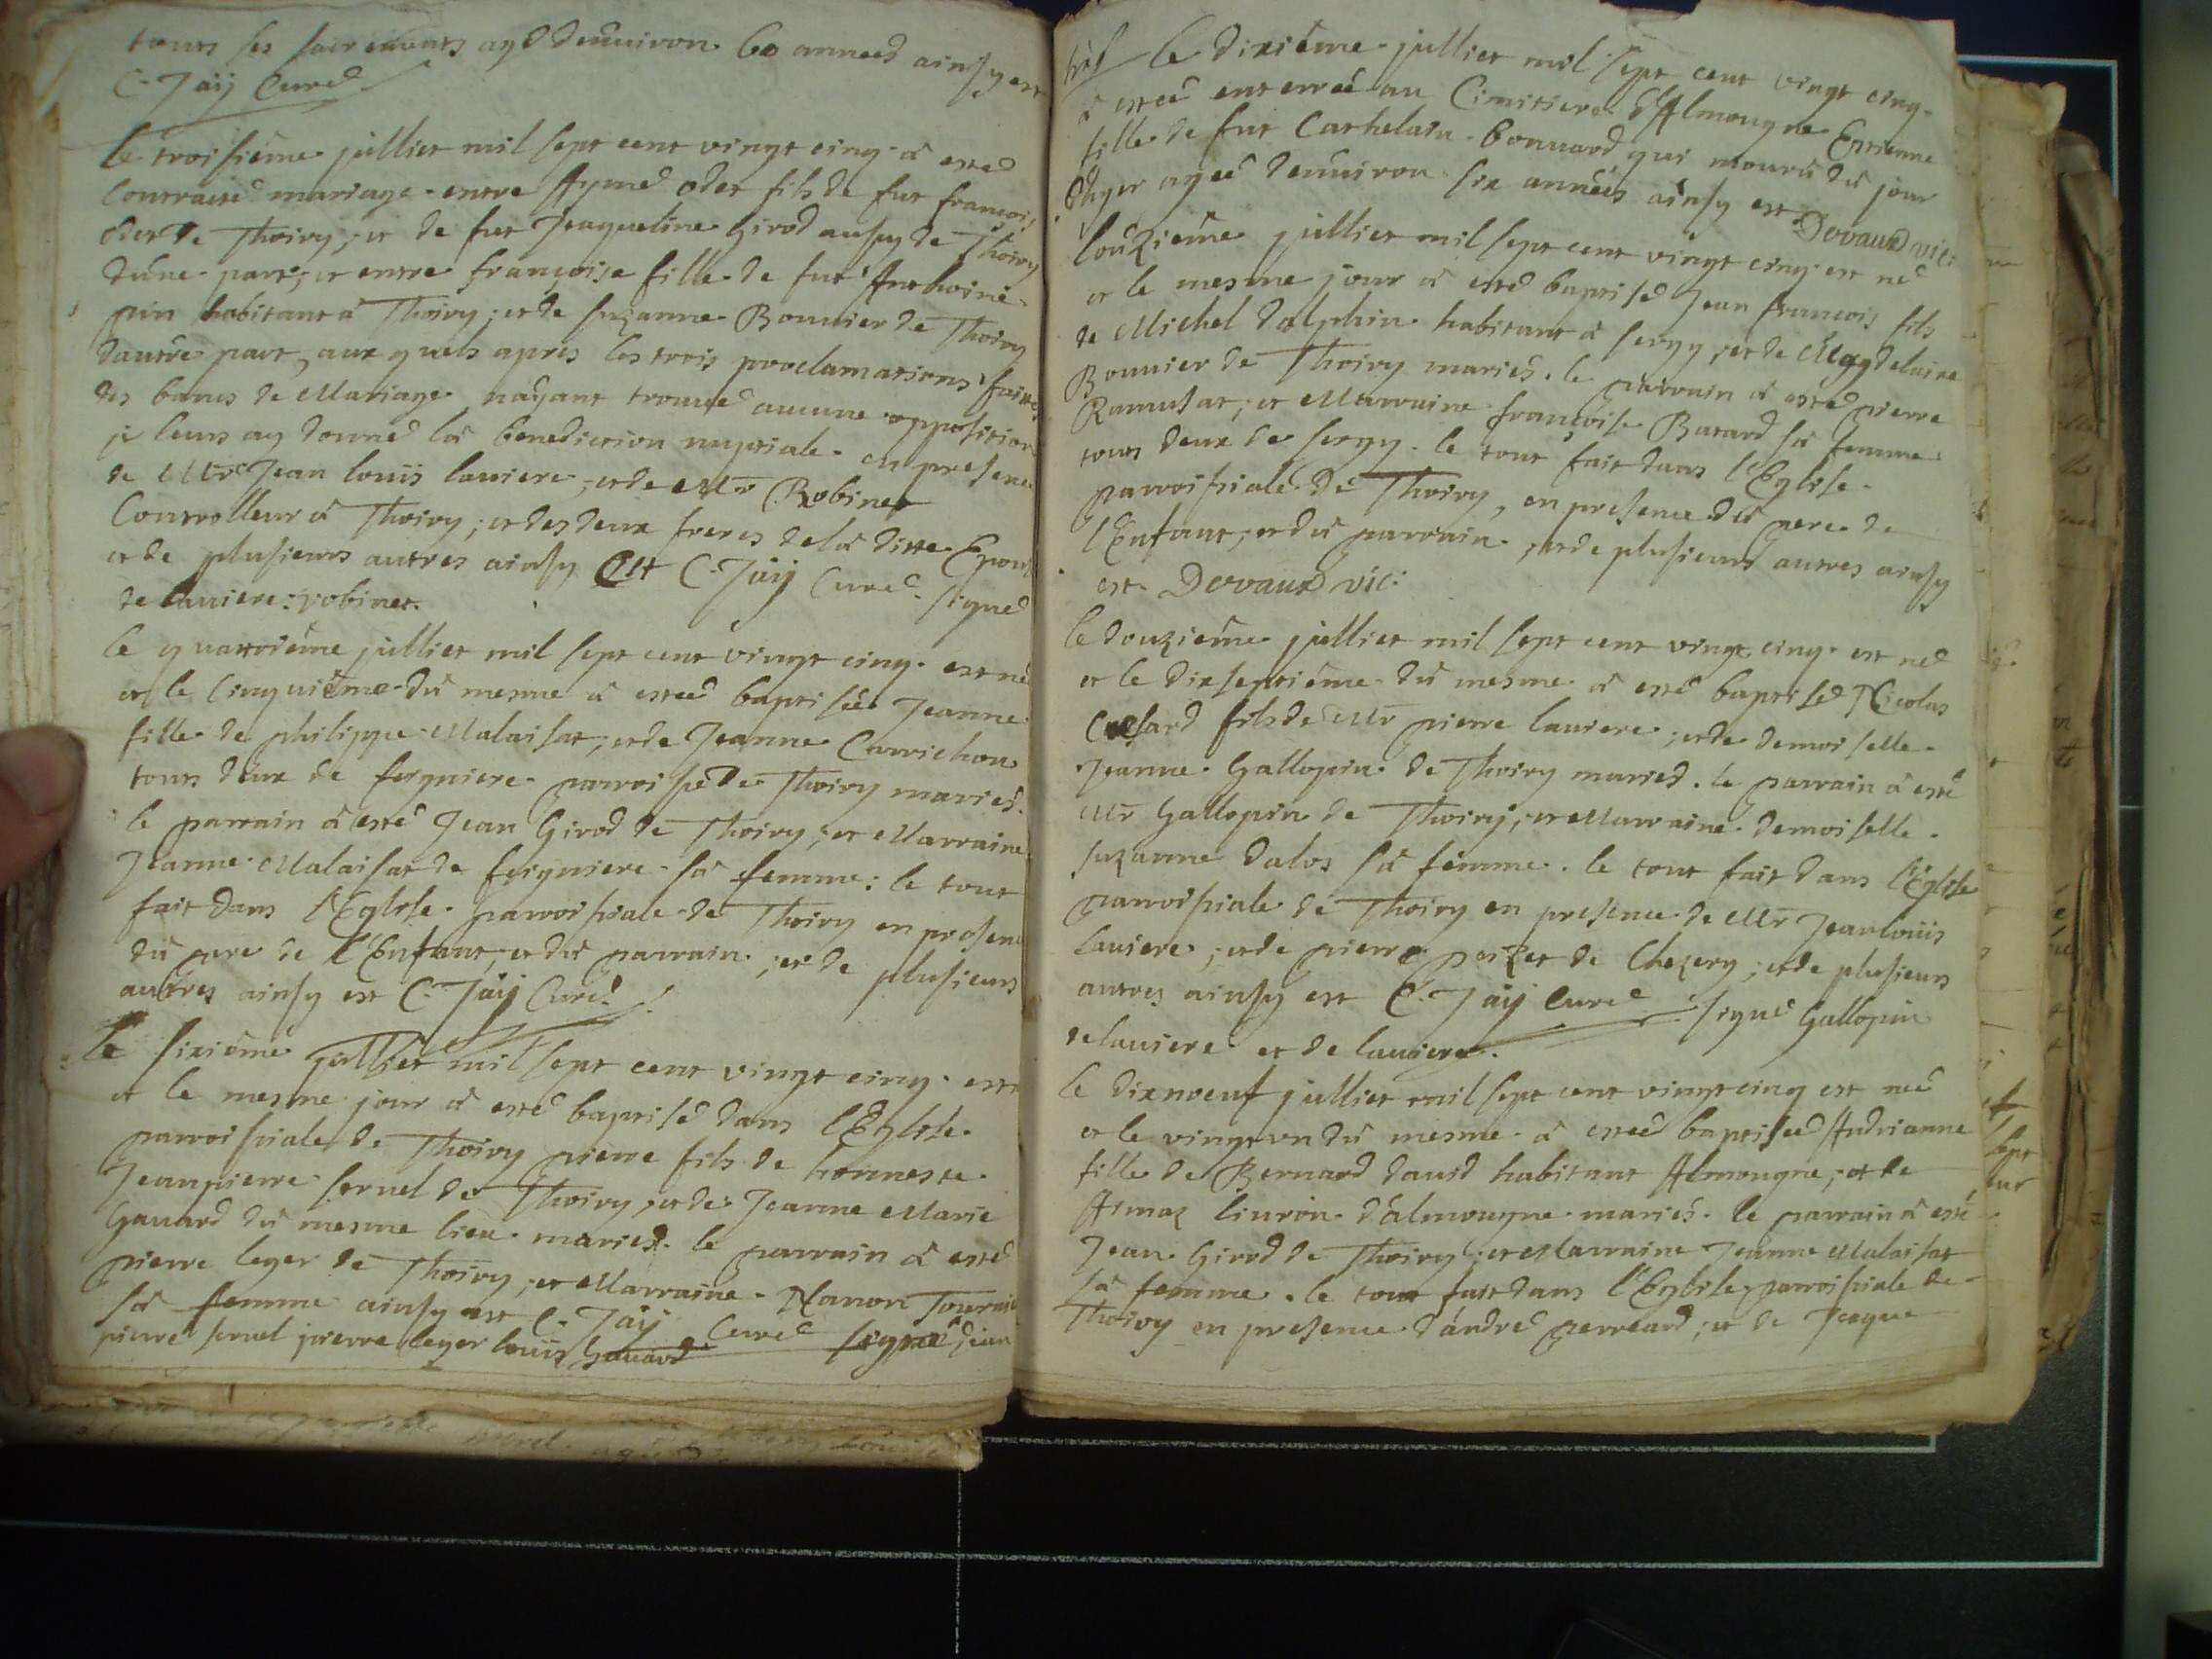 tours ses sacrements agé denuiron 60 années ainsy est
C. Jaÿ Curé
le troisiéme jullier mil sept cent vingt cinq à esté
Contracté mariage entre Aymé odet fils de fut françois
odet de Thoiry, et de fut Jeaqueline Girod aussy de Thoiry
dune part, et entre françoise fille de fut Anthoine
pin habitant à Thoiry, et de suzanne Bouuier de Thoiry
dautre part, aux quels apres les trois proclamations faittes
des bancs de Mariage nayant trouué aucune opposition
je leurs ay donné là benediction nuptiale en presence
de Mr Jean louis lauiere, et de Mr Robinet
Controlleur à Thoiry, et des deux freres de là ditte Epouse
et de plusieurs autres ainsy est C. Jaÿ Curé signé
de lauiere : robinet.
le quattriéme jullier mil sept cent vingt cinq est né
et le Cinquiéme dù mesme à esteé baptiseé Jeanne
fille de philippe Malaisat, et de Jeanne Carrichon
tours deux de feigniere parroisse de Thoiry mariés.
le parrain à esté Jean Girod de Thoiry, et Marraine
Jeanne Malaisat de feigniere sà femme : le tout
fait dans l'Eglise parroissiale de Thoiry en presence
dù pere de l'Enfant, et dù parrain, et de plusieurs
autres ainsy est C. Jaÿ Curé
le sixiéme jullier mil sept cent vingt cinq est
et le mesme jour à esté baptisé dans l'Eglise
parroissiale de Thoiry pierre fils de honneste
Jeanpierre fornel de Thoiry, et de Jeanne Marie
Gauard dù mesme lieu mariés. le parrain à esté
pierre leger de Thoiry, et Marraine Nanon
sà femme ainsy est C. Jaÿ Curé signé Jean
pierre fornel pierre leger louis Gauard
le dixiéme jullier mil sept cent vingt cinq
à esteé enterreé au Cimitiere d'Almougne Estienne
fille de fut Carthelain Bonuard qui mourù dù jour
dhyer ageé denuiron six années ainsy est Dovaux vic:
l'onziéme jullier mil sept cent vingt cinq est né
et le mesme jour à esté baptisé Jean francois fils
de Michel dalphin habitant à sergy, et de Magdelaine
Bouuier de Thoiry mariés. le parrain à esté pierre
Ramusat, et Marraine françoise Burard sà femme
tours deux de sergy. le tout fait dans l'Eglise
parroissiale de Thoiry, en presence dù pere de
l'Enfant, et dù parrain, et de plusieurs autres ainsy
est Dovaux vic:
le douziéme jullier mil sept cent vingt cinq est né
et le dixseptiéme dù mesme à esté baptisé Nicolas
Cesard fils de Mr pierre lauiere, et de demoiselle
Jeanne Gallopin de Thoiry mariés. le parrain à esté
Mr Gallopin de Thoiry, et Marraine demoiselle
suzanne dalos sà femme. le tout fait dans l'Eglise
parroissiale de Thoiry en presence de Mr Jean louis
lauiere, et de pierre poizet de Chezery, et de plusieurs
autres ainsy est C. Jaÿ Curé signé Gallopin
delauiere et de lauiere.
le dixneuf jullier mil sept cent vingt cinq est neé
et le vingt un dù mesme à esteé baptiseé Andrianne
fille de Bernard dauid habitant Almougne, et de
Armaz liuron d'almougne mariés. le parrain à esté
Jean Girod de Thoiry, et Marraine Jeanne Malaisat
sà femme. le tout fait dans l'Eglise parroissiale de
Thoiry en presence dandré perreard, et de Jeaque